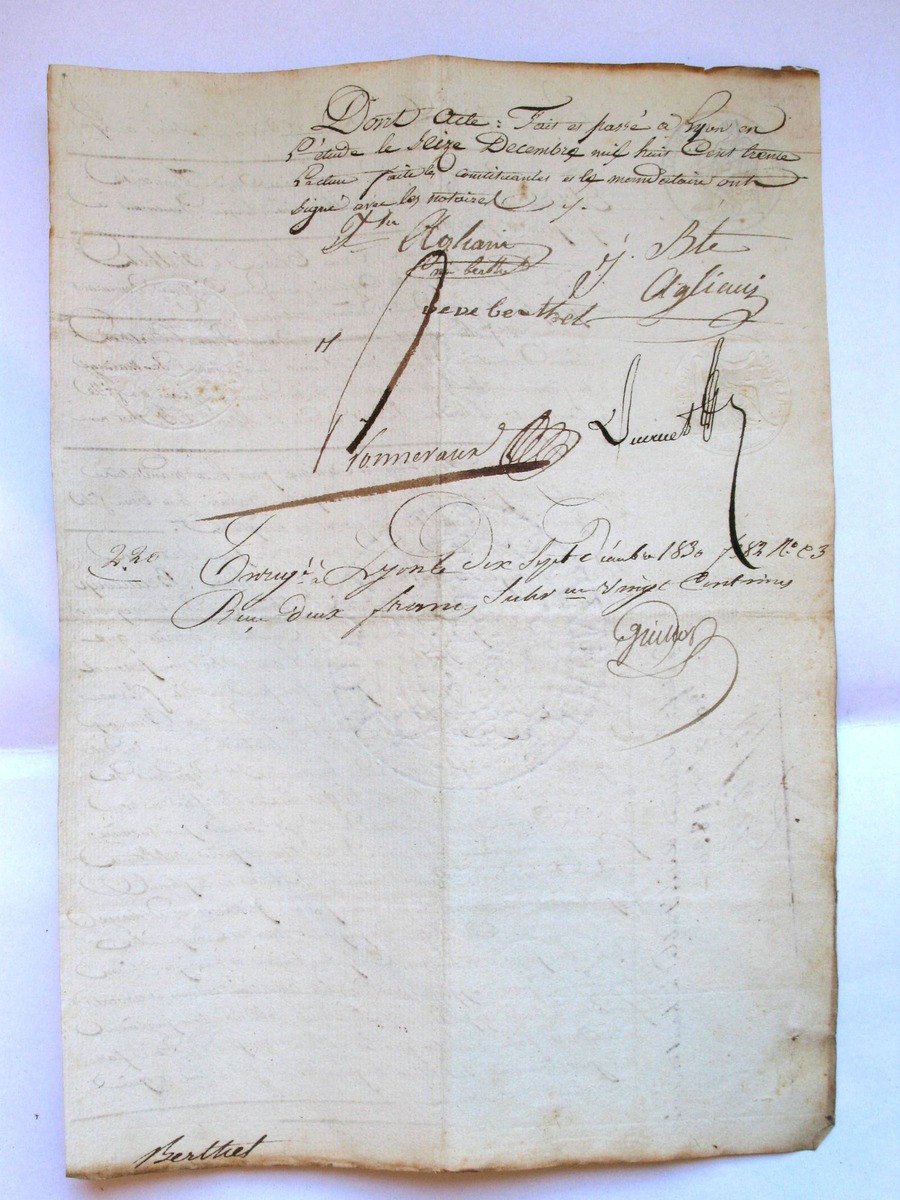 Dont Acte : Fait et passé à Lyon en
L'étude le seize Decembre mil huit cent trente
Lecture faite les constituantes et le mandataire ont
signé avec les notaires
Agliani
née berthet
J. Bte
Agliani
veve berthet
Bonnevaux
Ducruet
2.20
Enregé à Lyon le Dix Sept Décembre 1830 f 82 No C 3
Reçu deux francs Subv on vingt Centimes
Guillot
Berthet